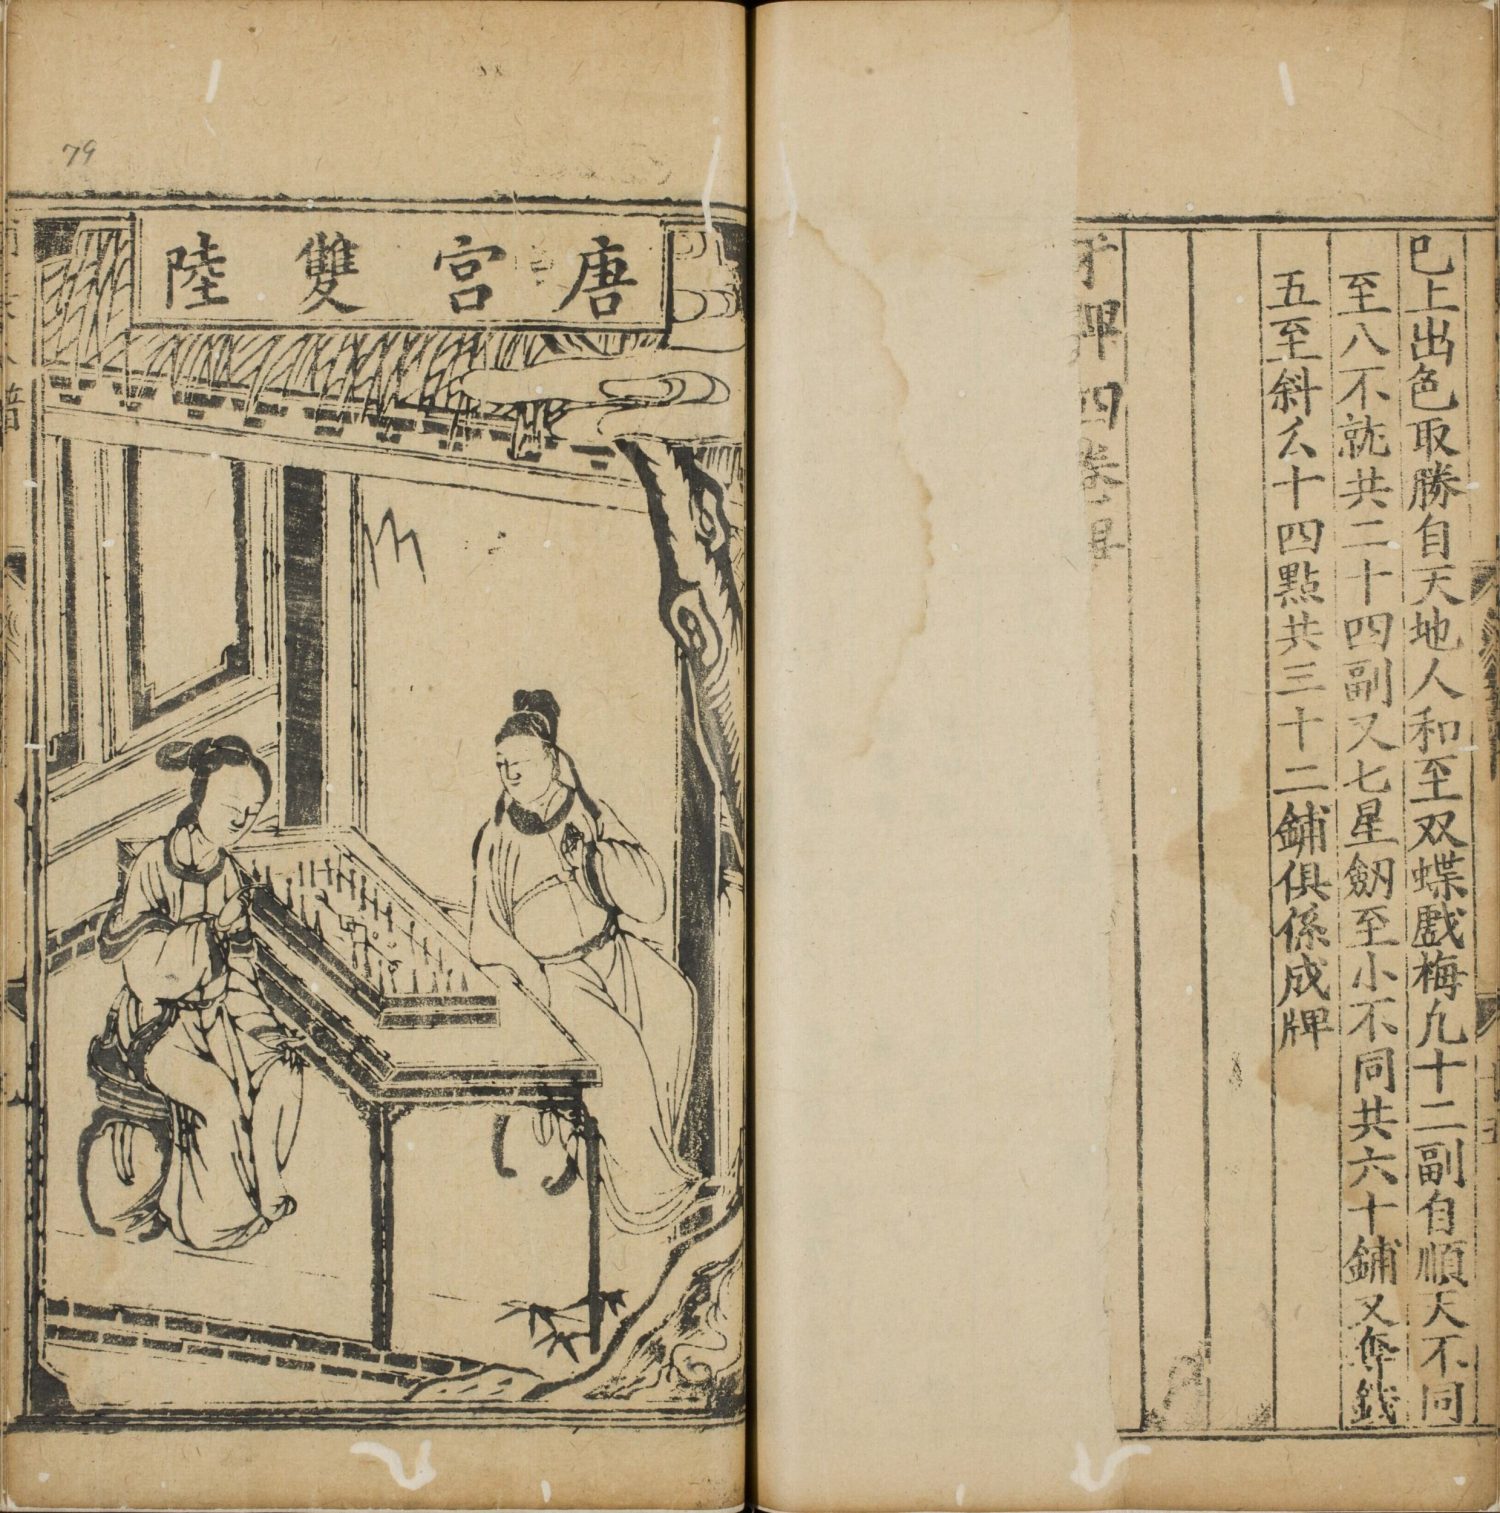 已上出色取勝自天地人和至双蝶戲梅九十二副自順天不同
至八不就共二十四副又七星劒至小不同共六十鋪又奪錢
五至斜么十四點共三十二鋪俱係成牌
牙牌四卷
唐宮雙陸
79